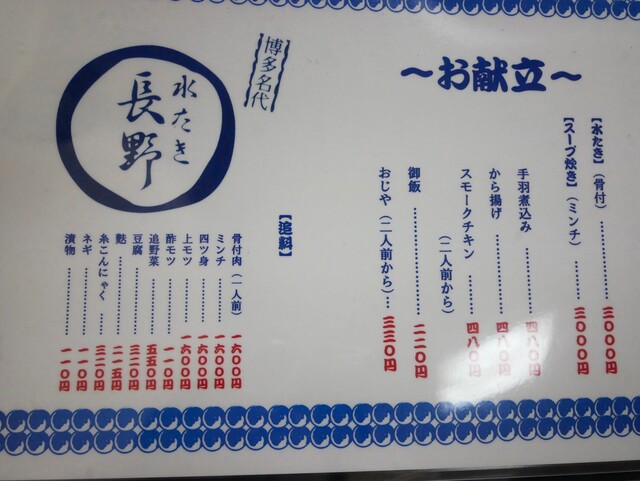 〜お献立〜
【水たき】(骨付)……三〇〇〇円
【スープ炊き】(ミンチ)……三〇〇〇円
手羽煮込み……四八〇円
から揚げ……四八〇円
スモークチキン……四八〇円
(二人前から)
御飯……二二〇円
おじや(二人前から)…三三〇円
博多名代
水たき
長野
【追料】
骨付肉(一人前)一六〇〇円
ミンチ……一六〇〇円
四ツ身……一六〇〇円
上モツ……一六〇〇円
酢モツ……一一〇円
追野菜……五五〇円
豆腐……三二〇円
麩……二一五円
糸こんにゃく…三二〇円
ネギ……一一〇円
漬物……一一〇円